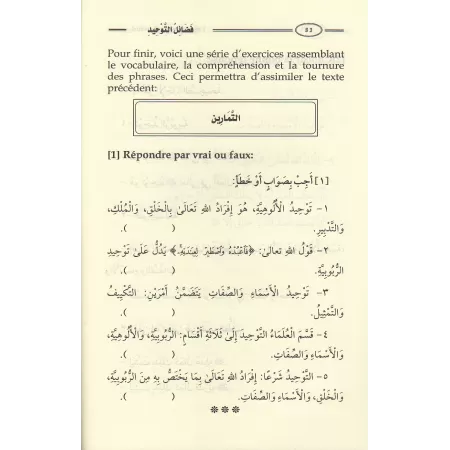 فَضَائِلُ التَّوْحِيدِ
83
Pour finir, voici une série d'exercices rassemblant
le vocabulaire, la compréhension et la tournure
des phrases. Ceci permettra d'assimiler le texte
précédent:
التَّمَارِين
[1] Répondre par vrai ou faux:
[١] أَجِبْ بِصَوَابٍ أَوْ خَطَأٍ:
١- تَوْحِيدُ الْأُلُوهِيَّةِ، هُوَ إِفْرَادُ اللهِ تَعَالَىٰ بِالْخَلْقِ، وَالْمُلْكِ،
وَالتَّدْبِيرِ. ( ).
٢- قَوْلُ اللهِ تعالىٰ: ﴿فَاعْبُدْهُ وَاصْطَبِرْ لِعِبَادَتِهِ﴾ يَدُلُّ عَلَىٰ تَوْحِيدِ
الرُّبُوبِيَّةِ. ( ).
٣- تَوْحِيدُ الْأَسْمَاءِ وَالصِّفَاتِ يَتَضَمَّنُ أَمْرَيْنِ: التَّكْيِيفُ
وَالتَّمْثِيلُ. ( ).
٤- قَسَّمَ الْعُلَمَاءُ التَّوْحِيدَ إِلَىٰ ثَلَاثَةِ أَقْسَامٍ: الرُّبُوبِيَّةِ، وَالْأُلُوهِيَّةِ،
وَالْأَسْمَاءِ وَالصِّفَاتِ. ( ).
٥- التَّوْحِيدُ شَرْعًا: إِفْرَادُ اللهِ تَعَالَىٰ بِمَا يَخْتَصُّ بِهِ مِنَ الرُّبُوبِيَّةِ،
وَالْخَلْقِ، وَالْأَسْمَاءِ وَالصِّفَاتِ. ( ).
***